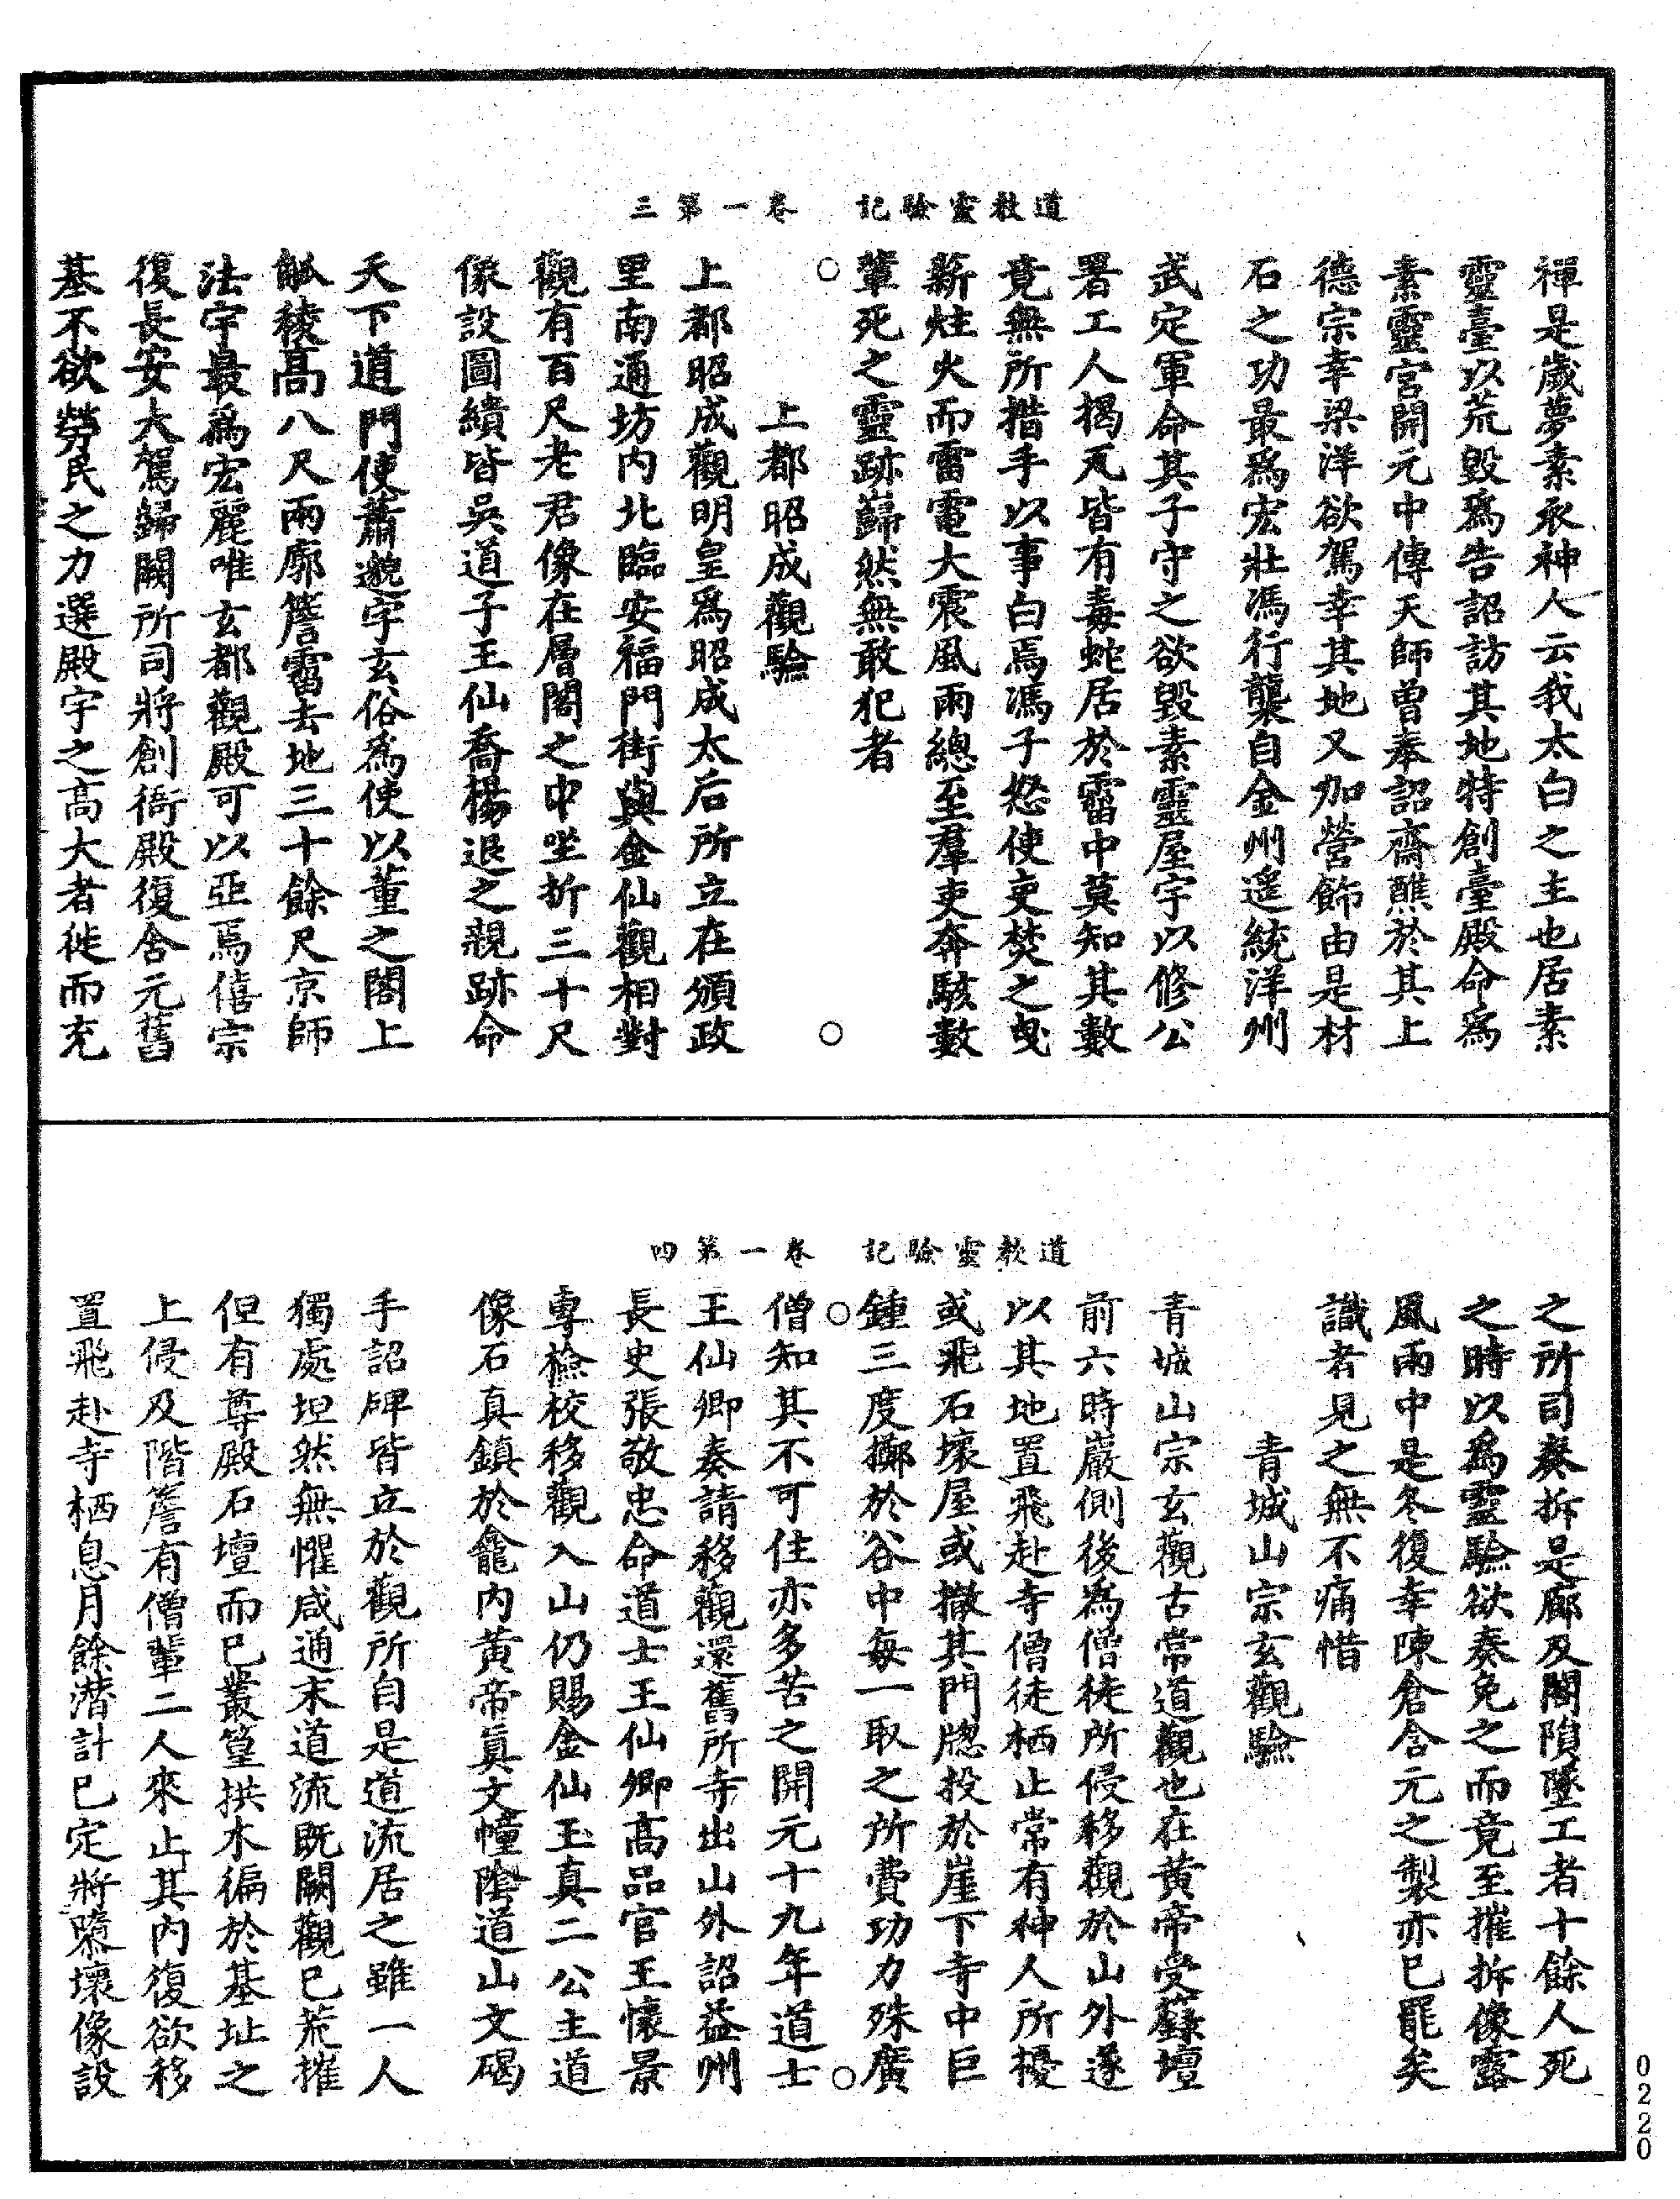 道教靈驗記　卷一第三
禪是歲夢素衣神人云我太白之主也居素
靈臺以荒毀爲告詔訪其地特創臺殿命爲
素靈宮開元中傳天師曾奉詔齋醮於其上
德宗幸梁洋欲駕幸其地又加營飾由是材
石之功最爲宏壯馮行襲自金州遥統洋州
武定軍命其子守之欲毀素靈屋宇以修公
署工人揭瓦皆有毒蛇居於霤中莫知其數
竟無所措手以事白焉馮子怒使吏焚之曳
薪炷火而雷電大震風雨總至羣吏奔駭數
輩死之靈跡巋然無敢犯者
上都昭成觀驗
上都昭成觀明皇爲昭成太后所立在頒政
里南通坊内北臨安福門街與金仙觀相對
觀有百尺老君像在層閣之中坐折三十尺
像設圖繢皆吳道子王仙喬楊退之親跡命
天下道門使蕭邈字玄俗爲使以董之閣上
觚稜高八尺兩廊簷霤去地三十餘尺京師
法宇最爲宏麗唯玄都觀殿可以亞焉僖宗
復長安大駕歸闕所司將創衙殿復含元舊
基不欲勞民之力選殿宇之高大者徙而充
道教靈驗記　卷一第四
之所司奏拆是廊及閣隕墜工者十餘人死
之時以爲靈驗欲奏免之而竟至摧拆像露
風雨中是冬復幸陳倉含元之製亦已罷矣
識者見之無不痛惜
青城山宗玄觀驗
青城山宗玄觀古常道觀也在黄帝受籙壇
前六時巖側後爲僧徒所侵移觀於山外遂
以其地置飛赴寺僧徒栖止常有神人所擾
或飛石壞屋或撒其門牕投於崖下寺中巨
鍾三度擲於谷中每一取之所費功力殊廣
僧知其不可住亦多苦之開元十九年道士
王仙卿奏請移觀還舊所寺出山外詔益州
長史張敬忠命道士王仙卿高品官王懷景
專檢校移觀入山仍賜金仙玉真二公主道
像石真鎮於龕内黄帝真文幢陰道山文碣
手詔碑皆立於觀所自是道流居之雖一人
獨處坦然無懼咸通末道流既闕觀已荒摧
但有尊殿石壇而已叢篁拱木徧於基址之
上侵及階簷有僧輩二人來止其内復欲移
置飛赴寺栖息月餘潛計已定將隳壞像設
0220